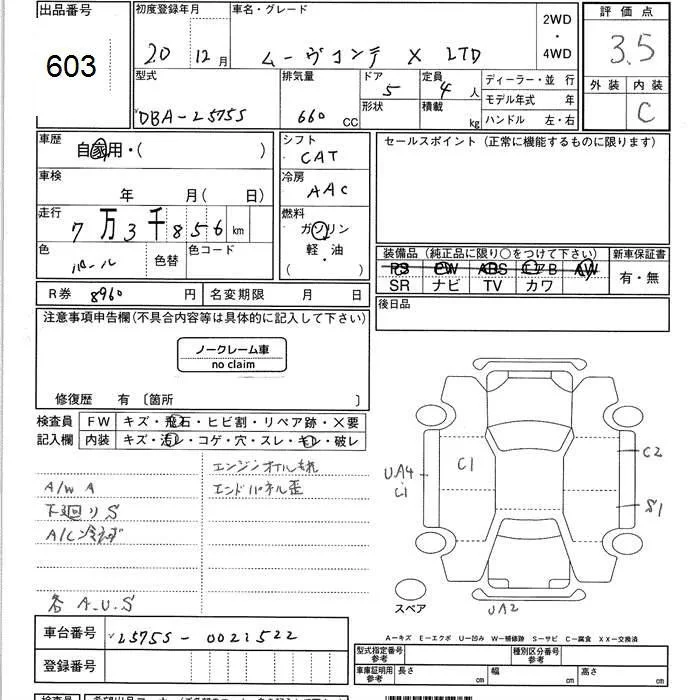 出品番号 初度登録年月 車名・グレード 評価点
603 20 12月 ムーヴコンテ X LTD 2WD ・ 4WD 3.5
型式 排気量 ドア 定員 ディーラー・並 行 外装 内装
DBA-L575S 660 CC 5 4人 モデル年式 年 C
形状 積載 kg ハンドル 左・右
車歴 シフト セールスポイント (正常に機能するものに限ります)
自家用・( ) CAT
車検 冷房
年 月(日) AAC
走行 燃料
7万3千856km ガソリン
色 色替 色コード 軽・油 装備品 (純正品に限り○をつけて下さい) 新車保証書
パール ( ) PS PW ABS エアB AW 有・無
SR ナビ TV カワ
R券 8960 円 名変期限 月 日 後日品
注意事項申告欄(不具合内容等は具体的に記入して下さい)
ノークレーム車
no claim
修復歴 有 〔箇所 〕
検査員 FW キズ・飛石・ヒビ割・リペア跡・X要
記入欄 内装 キズ・汚レ・コゲ・穴・スレ・キレ・破レ
エンジンオイルもれ
A/W A エンドパネル歪
下廻りS
A/C冷えず
各 A.U.S
C1
UA4
C1
C2
S1
スペア
UA2
車台番号 L575S-0021522
A-キズ E-エクボ U-凹み W-補修跡 S-サビ C-腐食 XX-交換済
登録番号 型式指定番号 参考 種別区分番号 参考
車庫証明用 参考 長さ cm 幅 cm 高さ cm